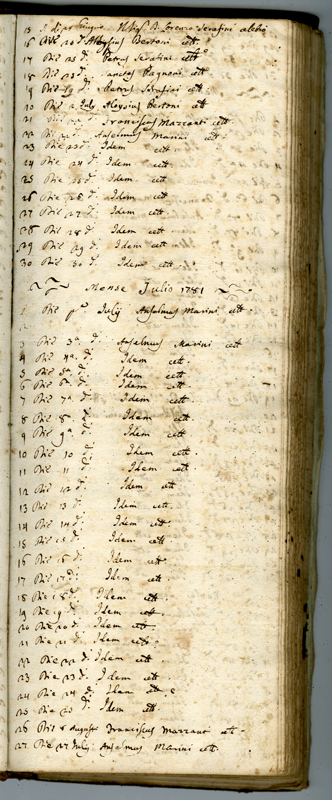 15 Lorenzo Serafini celebr
16 Die 20 d. Aloysius Bertoni cett
17 Die 23 d. Petrus Serafini cett
18 Die 23 d. Sanctes Pagnoni cett
19 Petrus Serafini cett
20 Die 2 July Aloysius Bertoni cett
21 Franciscus Mazzanti cett
22 Die Anselmus Marini cett
23 Die 23 d. Idem cett
24 Die 24 d. Idem cett.
25 Die 25 d. Idem cett
26 Die 26 d. Idem cett
27 Die 27 d. Idem cett
28 Die 28 d. Idem cett
29 Die 29 d. Idem cett
30 Die 30 d. Idem cett
Mense Julio 1781
1 Die pa Julij Anselmus Marini cett
2
3 Die 3a d. Anselmus Marini cett
4 Die 4a d. Idem cett.
5 Die 5a d. Idem cett
6 Die 6a d. Idem cett
7 Die 7a d. Idem cett
8 Die 8 d. Idem cett
9 Die 9a d. Idem cett
10 Die 10 d. Idem cett
11 Die 11 d. Idem cett
12 Die 12 d. Idem cett
13 Die 13 d. Idem cett.
14 Die 14 d. Idem cett.
15 Die 15 d. Idem cett.
16 Die 16 d. Idem cett
17 Die 17 d. Idem cett
18 Die 18 d. Idem cett
19 Die 19 d. Idem cett
20 Die 20 d. Idem cett
21 Die 21 d. Idem cett.
22 Die 22 d. Idem cett
23 Die 23 d. Idem cett
24 Die 24 d. Idem cett
25 Die 25 d. Idem cett
26 Die Augusti Franciscus Mazzanti cett.
27 Die 27 July Anselmus Marini cett